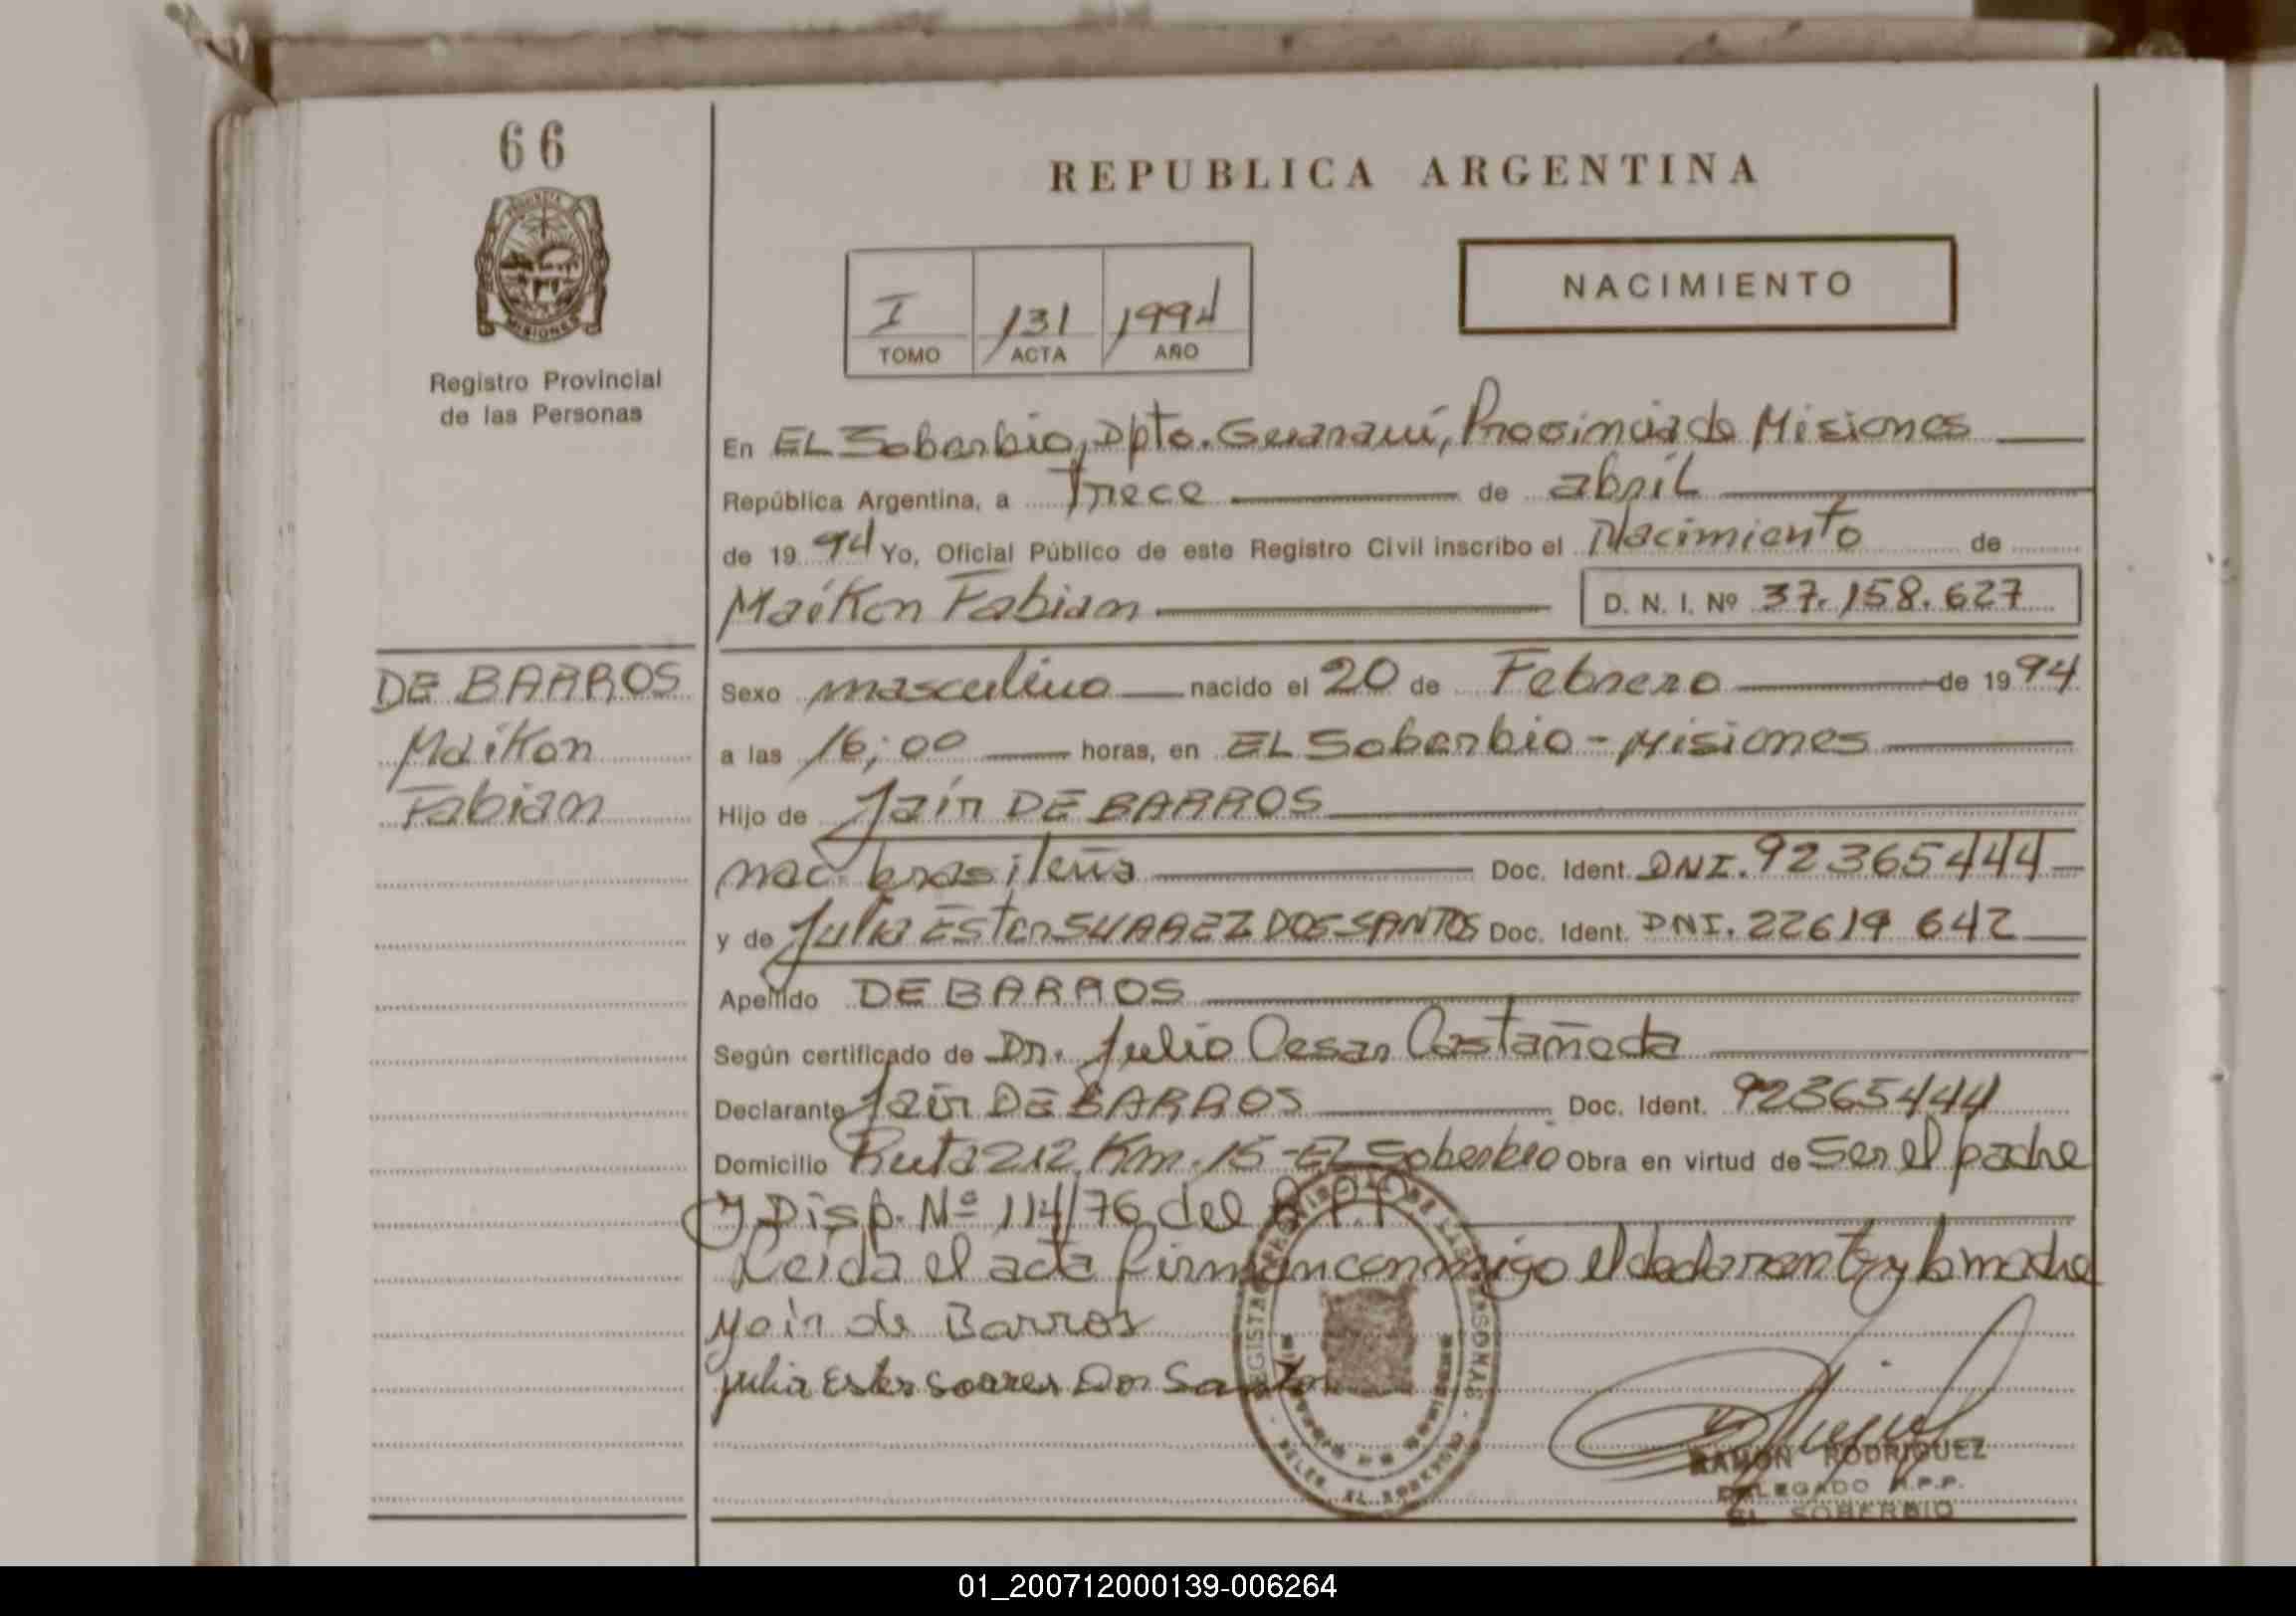 66
REPUBLICA ARGENTINA
NACIMIENTO
I 131 1994
TOMO ACTA AÑO
Registro Provincial
de las Personas
En EL Soberbio, Dpto. Guaraní, Provincia de Misiones
República Argentina, a Trece de abril
de 1994 Yo, Oficial Público de este Registro Civil inscribo el Nacimiento de
Maikon Fabian D. N. I. Nº 37.158.627
DE BARROS
Maikon
Fabian
Sexo masculino nacido el 20 de Febrero de 1994
a las 16;00 horas, en EL Soberbio - Misiones
Hijo de Jair DE BARROS
nac. brasileña Doc. Ident. DNI. 92365444
y de Julia Ester SUAREZ DOS SANTOS Doc. Ident. DNI. 22619 642
Apellido DE BARROS
Según certificado de Dr. Julio Cesar Castañeda
Declarante Jair DE BARROS Doc. Ident. 92365444
Domicilio Ruta 212 Km. 15 - EL Soberbio Obra en virtud de ser el padre
y Disp. Nº 114/76 del R.P.P.
Leida el acta firman conmigo el declarante y la madre
yair de Barros
julia Ester soares Dos Santos
RAMON RODRIGUEZ
DELEGADO R.P.P.
EL SOBERBIO
01_200712000139-006264